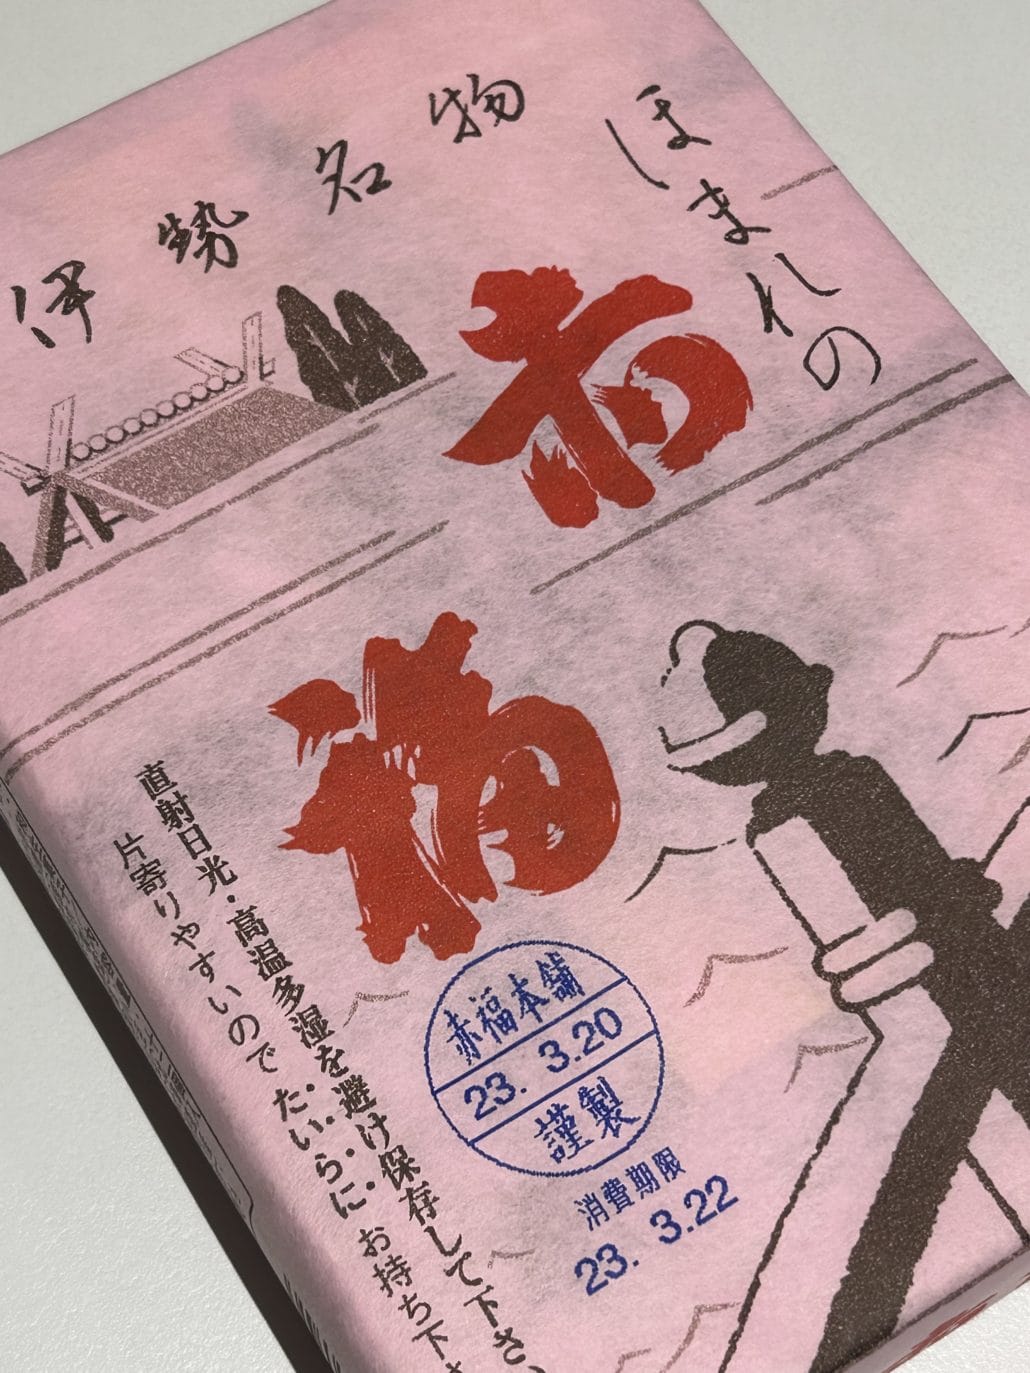 伊勢名物
ほまれの
赤福
直射日光・高温多湿を避け保存して下さい、
片寄りやすいので たいらに お持ち下さ
赤福本舗
23. 3.20
謹製
消費期限
23. 3.22